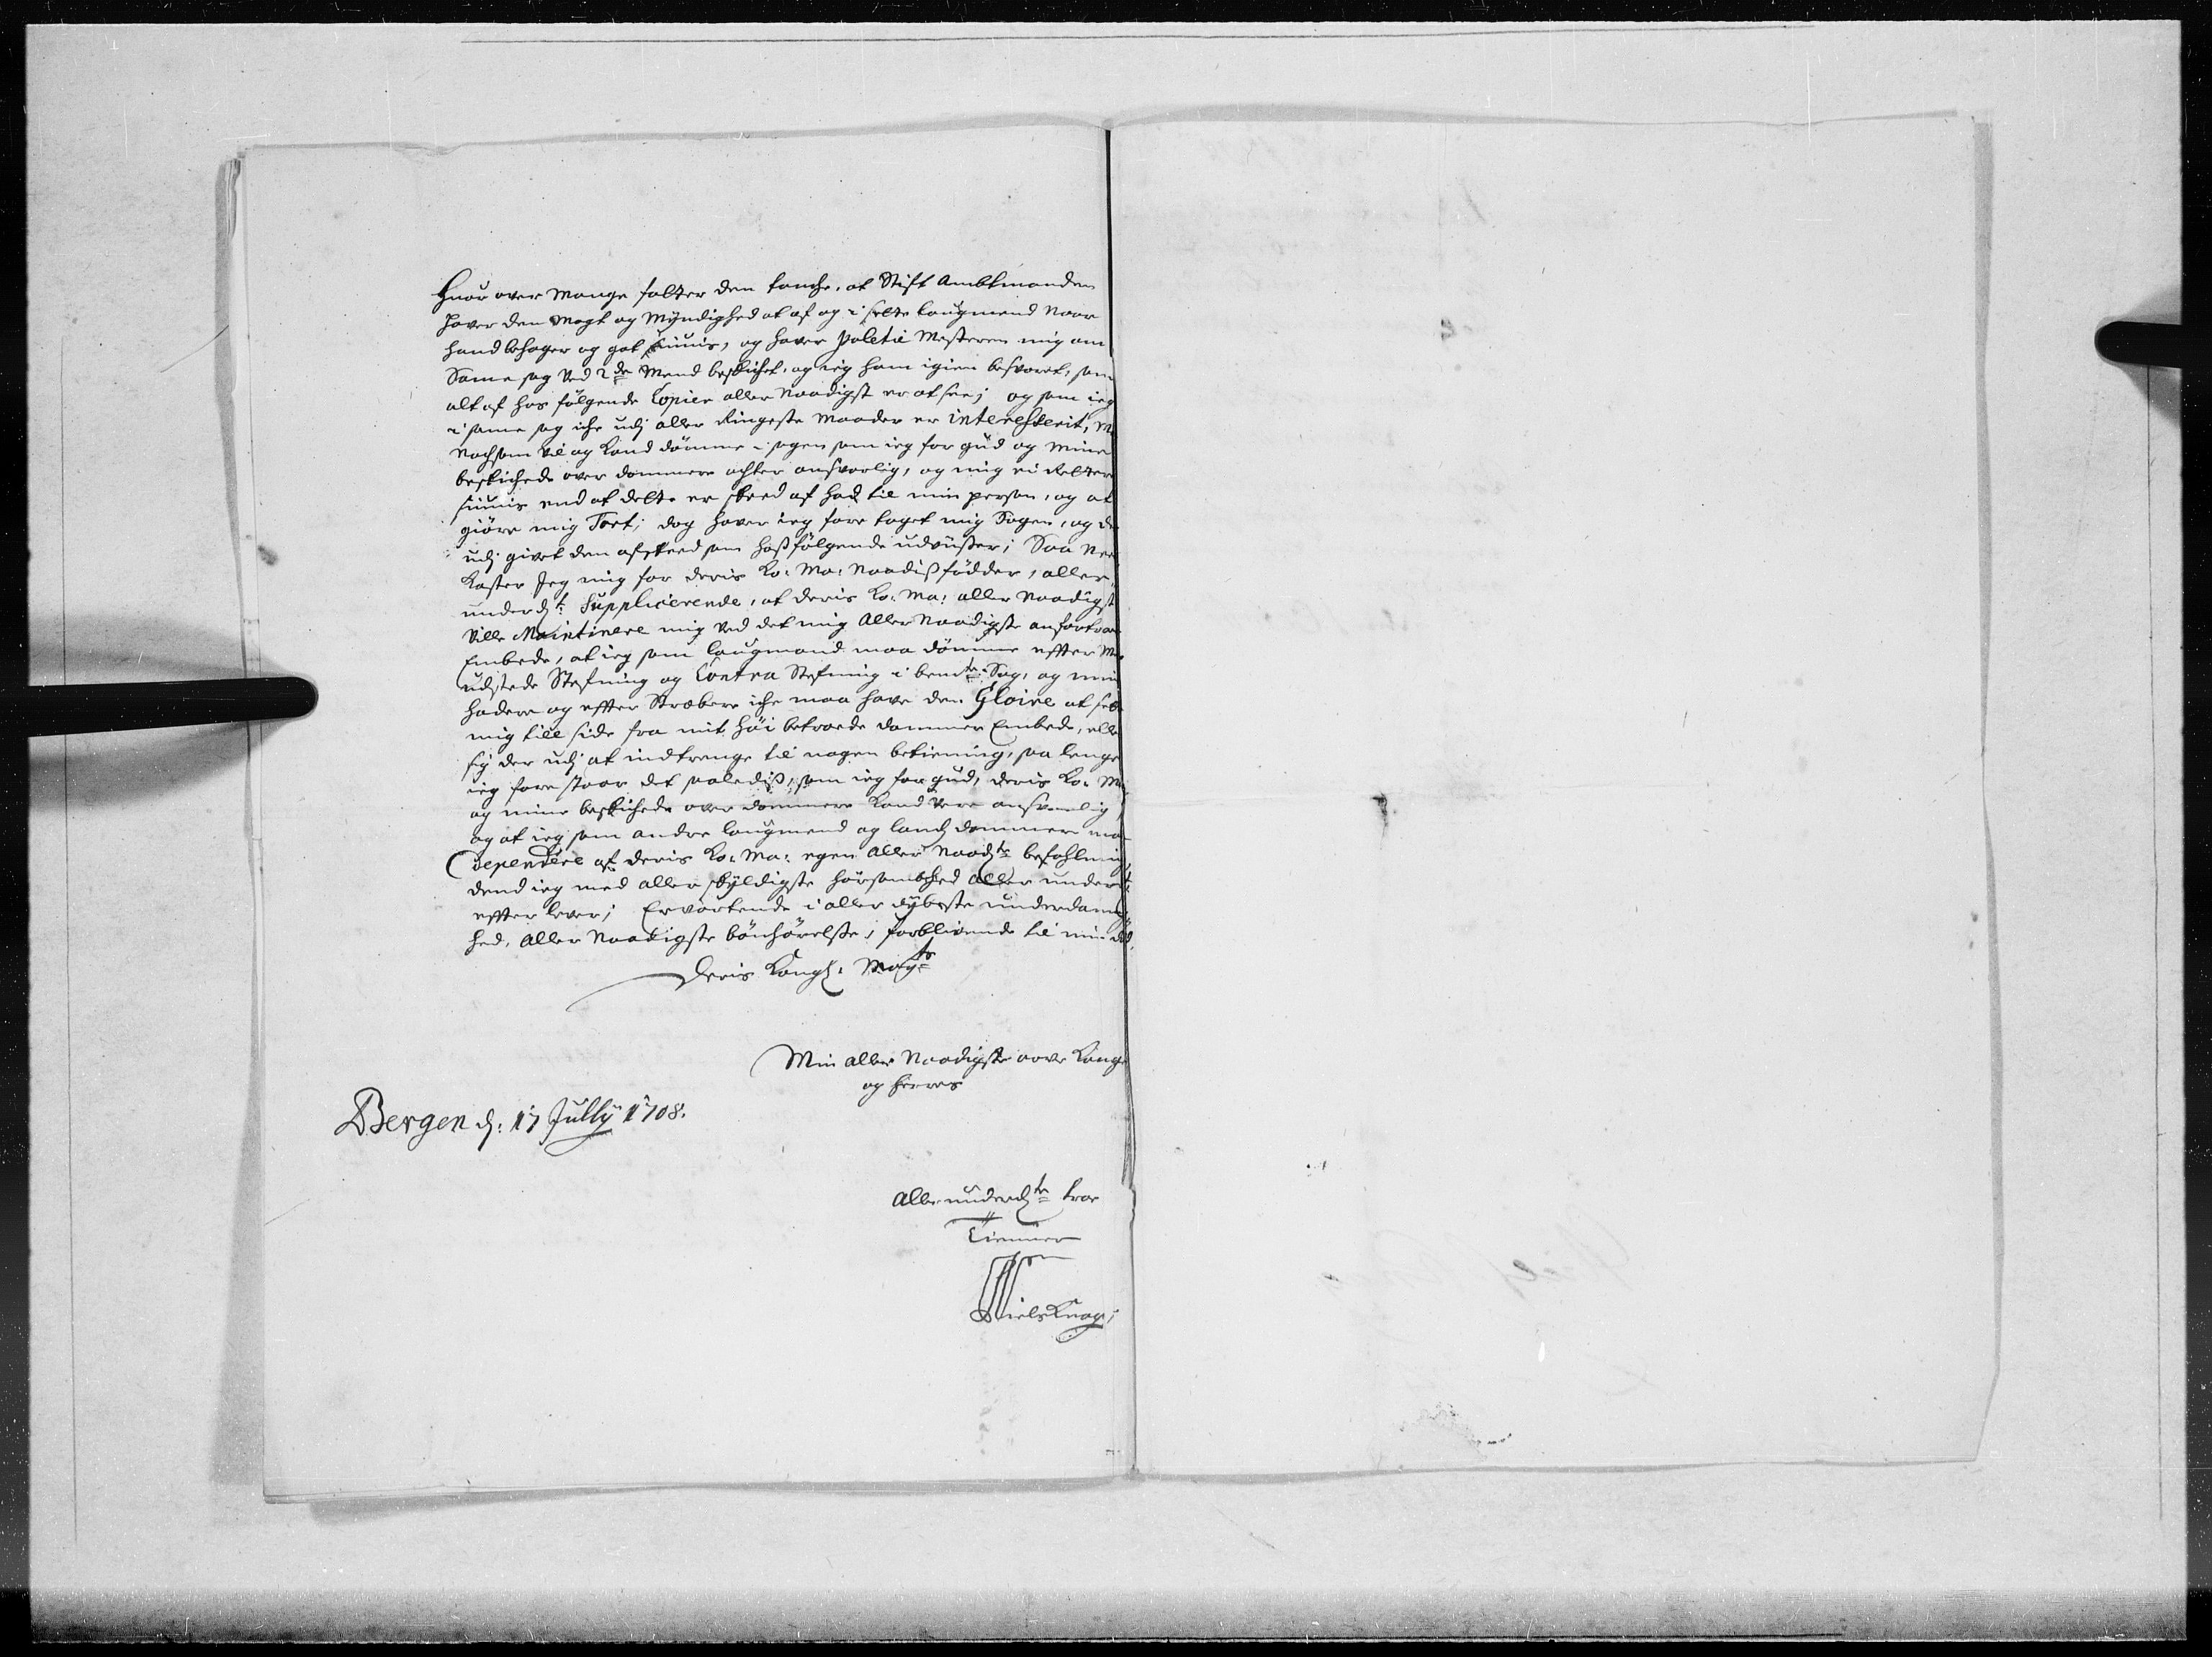 Huor over Mange fatter den tanche, at Stift Ambtmanden
haver den Magt og Myndighed at af og i sette laugmend Naar
hand behager og got siunis, og haver Politie Mesteren mig om
Same sag Ved 2de Mend beskichet, og ieg ham igien besvaret, som
alt af hos følgende Copier aller Naadigst er at see; og som ieg
i same sag iche udj aller Ringeste Maader er interesserit,
Nochsom vil og Kand dømme i sagen som ieg for gud og Mine
beskichede over dommere agter ansvarlig, og mig ei Retter
siunis end at dette er skeed af had til min person, og at
giøre mig Tort; dog haver ieg fore taget mig Sagen, og der
udj givet den afskeed som hoßfølgende udviiser; Saa
Kaster Jeg mig for deris Ko: Ma: Naadiß fødder, aller
underdt: Supplicerende, at deris Ko: Ma: aller Naadigst
Ville Maintinere mig Ved det mig Aller Naadigste anfortroede
Embede, at ieg som laugmand maa dømme effter
udstede Stefning og Contra Stefning i bemte: Sag, og min
hadere og effter Stræbere iche maa have den Gloire at sette
mig till side fra mit høi betroede dommer Embede, eller
sig der udj at indtrenge til nogen betiening, saa lenge
ieg fore staar det saalediß, som ieg for gud, deris Ko: Ma:
og mine beskichede over dommere Kand Vere ansvarlig,
og at ieg som andre laugmend og land dommere maa
dependere af deris Ko: Ma: egen Aller Naadte befahling,
dend ieg med aller skyldigste hørsomhed aller under
effter lever; Ervartende i aller dybeste underdanig
hed, Aller Naadigste bønhørelße, forblivende til min død,
Deris Kongl: Mayts
Min Aller Naadigste arve Konge
og herres
Bergen d: 17 Jully 1708.
Aller underdte troe
Tienner
Niels Knag;